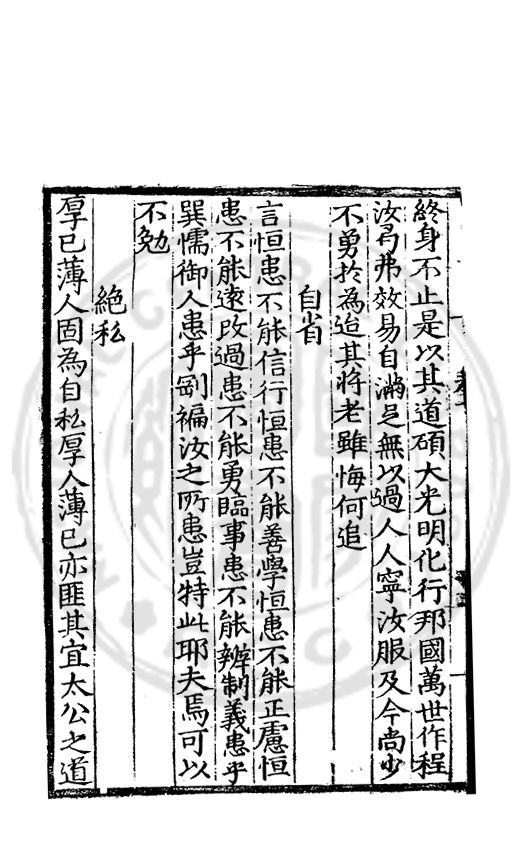 終身不止是以其道碩大光明化行邦國萬世作程
汝曷弗效易自滿足無以過人人寧汝服及今尚少
不勇於為迨其將老雖悔何追
自省
言恒患不能信行恒患不能善學恒患不能正慮恒
患不能遠改過患不能勇臨事患不能辨制義患乎
巽懦御人患乎剛褊汝之所患豈特此耶夫焉可以
不勉
絕私
厚己薄人固為自私厚人薄己亦匪其宜大公之道